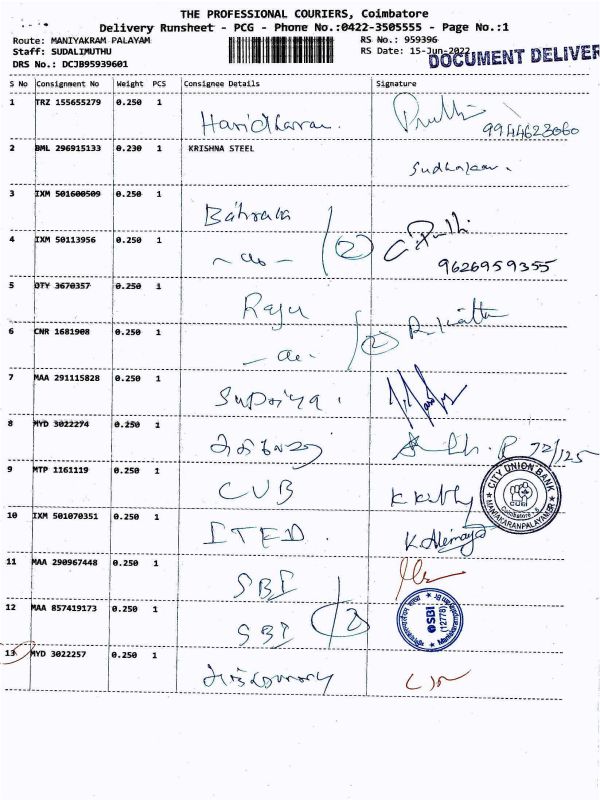 THE PROFESSIONAL COURIERS, Coimbatore
Delivery Runsheet - PCG - Phone No.:0422-3505555 - Page No.:1
Route: MANIYAKRAM PALAYAM
RS No.: 959396
Staff: SUDALIMUTHU
RS Date: 15-Jun-2022
DOCUMENT DELIVER
DRS No.: DCJB95939601
S No Consignment No Weight PCS Consignee Details Signature
1 TRZ 155655279 0.250 1 Haridharan.
9944623060
2 BML 296915133 0.230 1 KRISHNA STEEL
Sudhakar.
3 IXM 501600509 0.250 1
4 IXM 50113956 0.250 1 - do - 2
9626959355
5 OTY 3670357 0.250 1 Raju
6 CNR 1681908 0.250 1 - do - 2
7 MAA 291115828 0.250 1 Supriya.
8 MYD 3022274 0.250 1
72/125
9 MTP 1161119 0.250 1 CUB
CITY UNION BANK
Coimbatore - 6
MANIAKARANPALAYAM BR
10 IXM 501070351 0.250 1 ITED.
11 MAA 290967448 0.250 1 SBI
12 MAA 857419173 0.250 1 SBI 2
SBI
(12778)
13 MYD 3022257 0.250 1